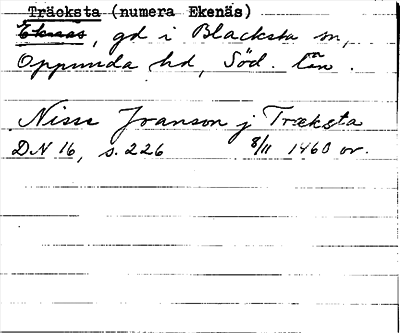 Träcksta (numera Ekenäs)
Ekenäs, gd i Blacksta sn,
Oppunda hd, Söd. län.
Nisse Joanson j Træksta
DN 16, s. 226 8/11 1460 or.